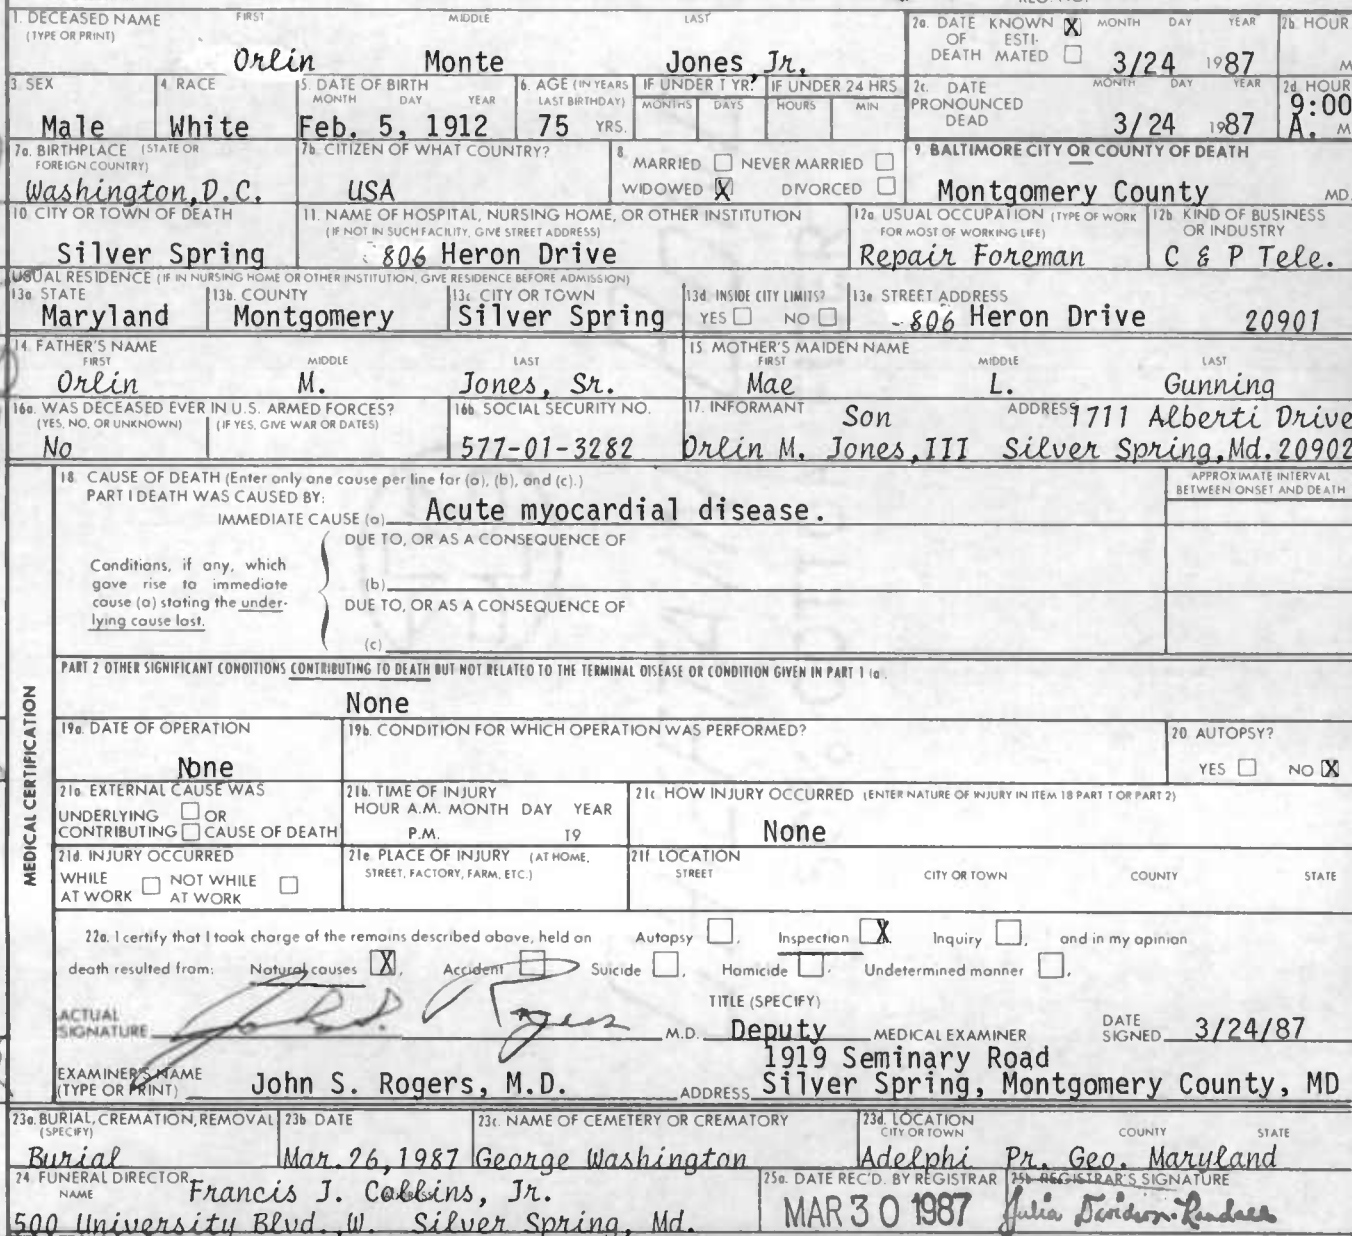 1. DECEASED NAME FIRST MIDDLE LAST
(TYPE OR PRINT)
Orlin Monte Jones, Jr.
2a. DATE KNOWN X MONTH DAY YEAR
OF ESTI-
DEATH MATED
3/24 1987
2b. HOUR
M
3 SEX
Male
4. RACE
White
5. DATE OF BIRTH
MONTH DAY YEAR
Feb. 5, 1912
6. AGE (IN YEARS
LAST BIRTHDAY)
75 YRS.
IF UNDER 1 YR.
MONTHS DAYS
IF UNDER 24 HRS
HOURS MIN
2c. DATE MONTH DAY YEAR
PRONOUNCED
DEAD
3/24 1987
2d. HOUR
9:00
A. M
7a. BIRTHPLACE (STATE OR
FOREIGN COUNTRY)
Washington, D.C.
7b. CITIZEN OF WHAT COUNTRY?
USA
8.
MARRIED NEVER MARRIED
WIDOWED X DIVORCED
9. BALTIMORE CITY OR COUNTY OF DEATH
Montgomery County MD.
10 CITY OR TOWN OF DEATH
Silver Spring
11. NAME OF HOSPITAL, NURSING HOME, OR OTHER INSTITUTION
(IF NOT IN SUCH FACILITY, GIVE STREET ADDRESS)
806 Heron Drive
12a USUAL OCCUPATION (TYPE OF WORK
FOR MOST OF WORKING LIFE)
Repair Foreman
12b. KIND OF BUSINESS
OR INDUSTRY
C & P Tele.
USUAL RESIDENCE (IF IN NURSING HOME OR OTHER INSTITUTION, GIVE RESIDENCE BEFORE ADMISSION)
13a STATE
Maryland
13b. COUNTY
Montgomery
13c CITY OR TOWN
Silver Spring
13d. INSIDE CITY LIMITS?
YES NO
13e STREET ADDRESS
806 Heron Drive 20901
14. FATHER'S NAME
FIRST MIDDLE LAST
Orlin M. Jones, Sr.
15 MOTHER'S MAIDEN NAME
FIRST MIDDLE LAST
Mae L. Gunning
16a. WAS DECEASED EVER IN U.S. ARMED FORCES?
(YES, NO, OR UNKNOWN) (IF YES, GIVE WAR OR DATES)
No
16b SOCIAL SECURITY NO.
577-01-3282
17. INFORMANT Son ADDRESS 1711 Alberti Drive
Orlin M. Jones, III Silver Spring, Md. 20902
18 CAUSE OF DEATH (Enter only one cause per line for (a), (b), and (c).)
PART I DEATH WAS CAUSED BY:
APPROXIMATE INTERVAL
BETWEEN ONSET AND DEATH
IMMEDIATE CAUSE (a) Acute myocardial disease.
DUE TO, OR AS A CONSEQUENCE OF
Conditions, if any, which
gave rise to immediate
cause (a) stating the under-
lying cause last.
(b)
DUE TO, OR AS A CONSEQUENCE OF
(c)
PART 2 OTHER SIGNIFICANT CONDITIONS CONTRIBUTING TO DEATH BUT NOT RELATED TO THE TERMINAL DISEASE OR CONDITION GIVEN IN PART 1 (a).
None
MEDICAL CERTIFICATION
19a. DATE OF OPERATION
None
19b. CONDITION FOR WHICH OPERATION WAS PERFORMED?
20 AUTOPSY?
YES NO X
21a. EXTERNAL CAUSE WAS
UNDERLYING OR
CONTRIBUTING CAUSE OF DEATH
21b. TIME OF INJURY
HOUR A.M. MONTH DAY YEAR
P.M. 19
21c HOW INJURY OCCURRED (ENTER NATURE OF INJURY IN ITEM 18 PART 1 OR PART 2)
None
21d. INJURY OCCURRED
WHILE NOT WHILE
AT WORK AT WORK
21e PLACE OF INJURY (AT HOME,
STREET, FACTORY, FARM, ETC.)
21f LOCATION
STREET CITY OR TOWN COUNTY STATE
22a. I certify that I took charge of the remains described above, held an Autopsy , Inspection X, Inquiry , and in my opinion
death resulted from: Natural causes X, Accident Suicide , Homicide , Undetermined manner ,
ACTUAL
SIGNATURE John S. Rogers M.D.
TITLE (SPECIFY)
Deputy MEDICAL EXAMINER
DATE
SIGNED 3/24/87
1919 Seminary Road
EXAMINER'S NAME
(TYPE OR PRINT) John S. Rogers, M.D. ADDRESS Silver Spring, Montgomery County, MD
23a. BURIAL, CREMATION, REMOVAL
(SPECIFY)
Burial
23b DATE
Mar. 26, 1987
23c. NAME OF CEMETERY OR CREMATORY
George Washington
23d. LOCATION
CITY OR TOWN COUNTY STATE
Adelphi Pr. Geo. Maryland
24 FUNERAL DIRECTOR
NAME Francis J. Collins, Jr.
500 University Blvd., W. Silver Spring, Md.
25a. DATE REC'D. BY REGISTRAR
MAR 30 1987
25b REGISTRAR'S SIGNATURE
Julia Davidson-Randall